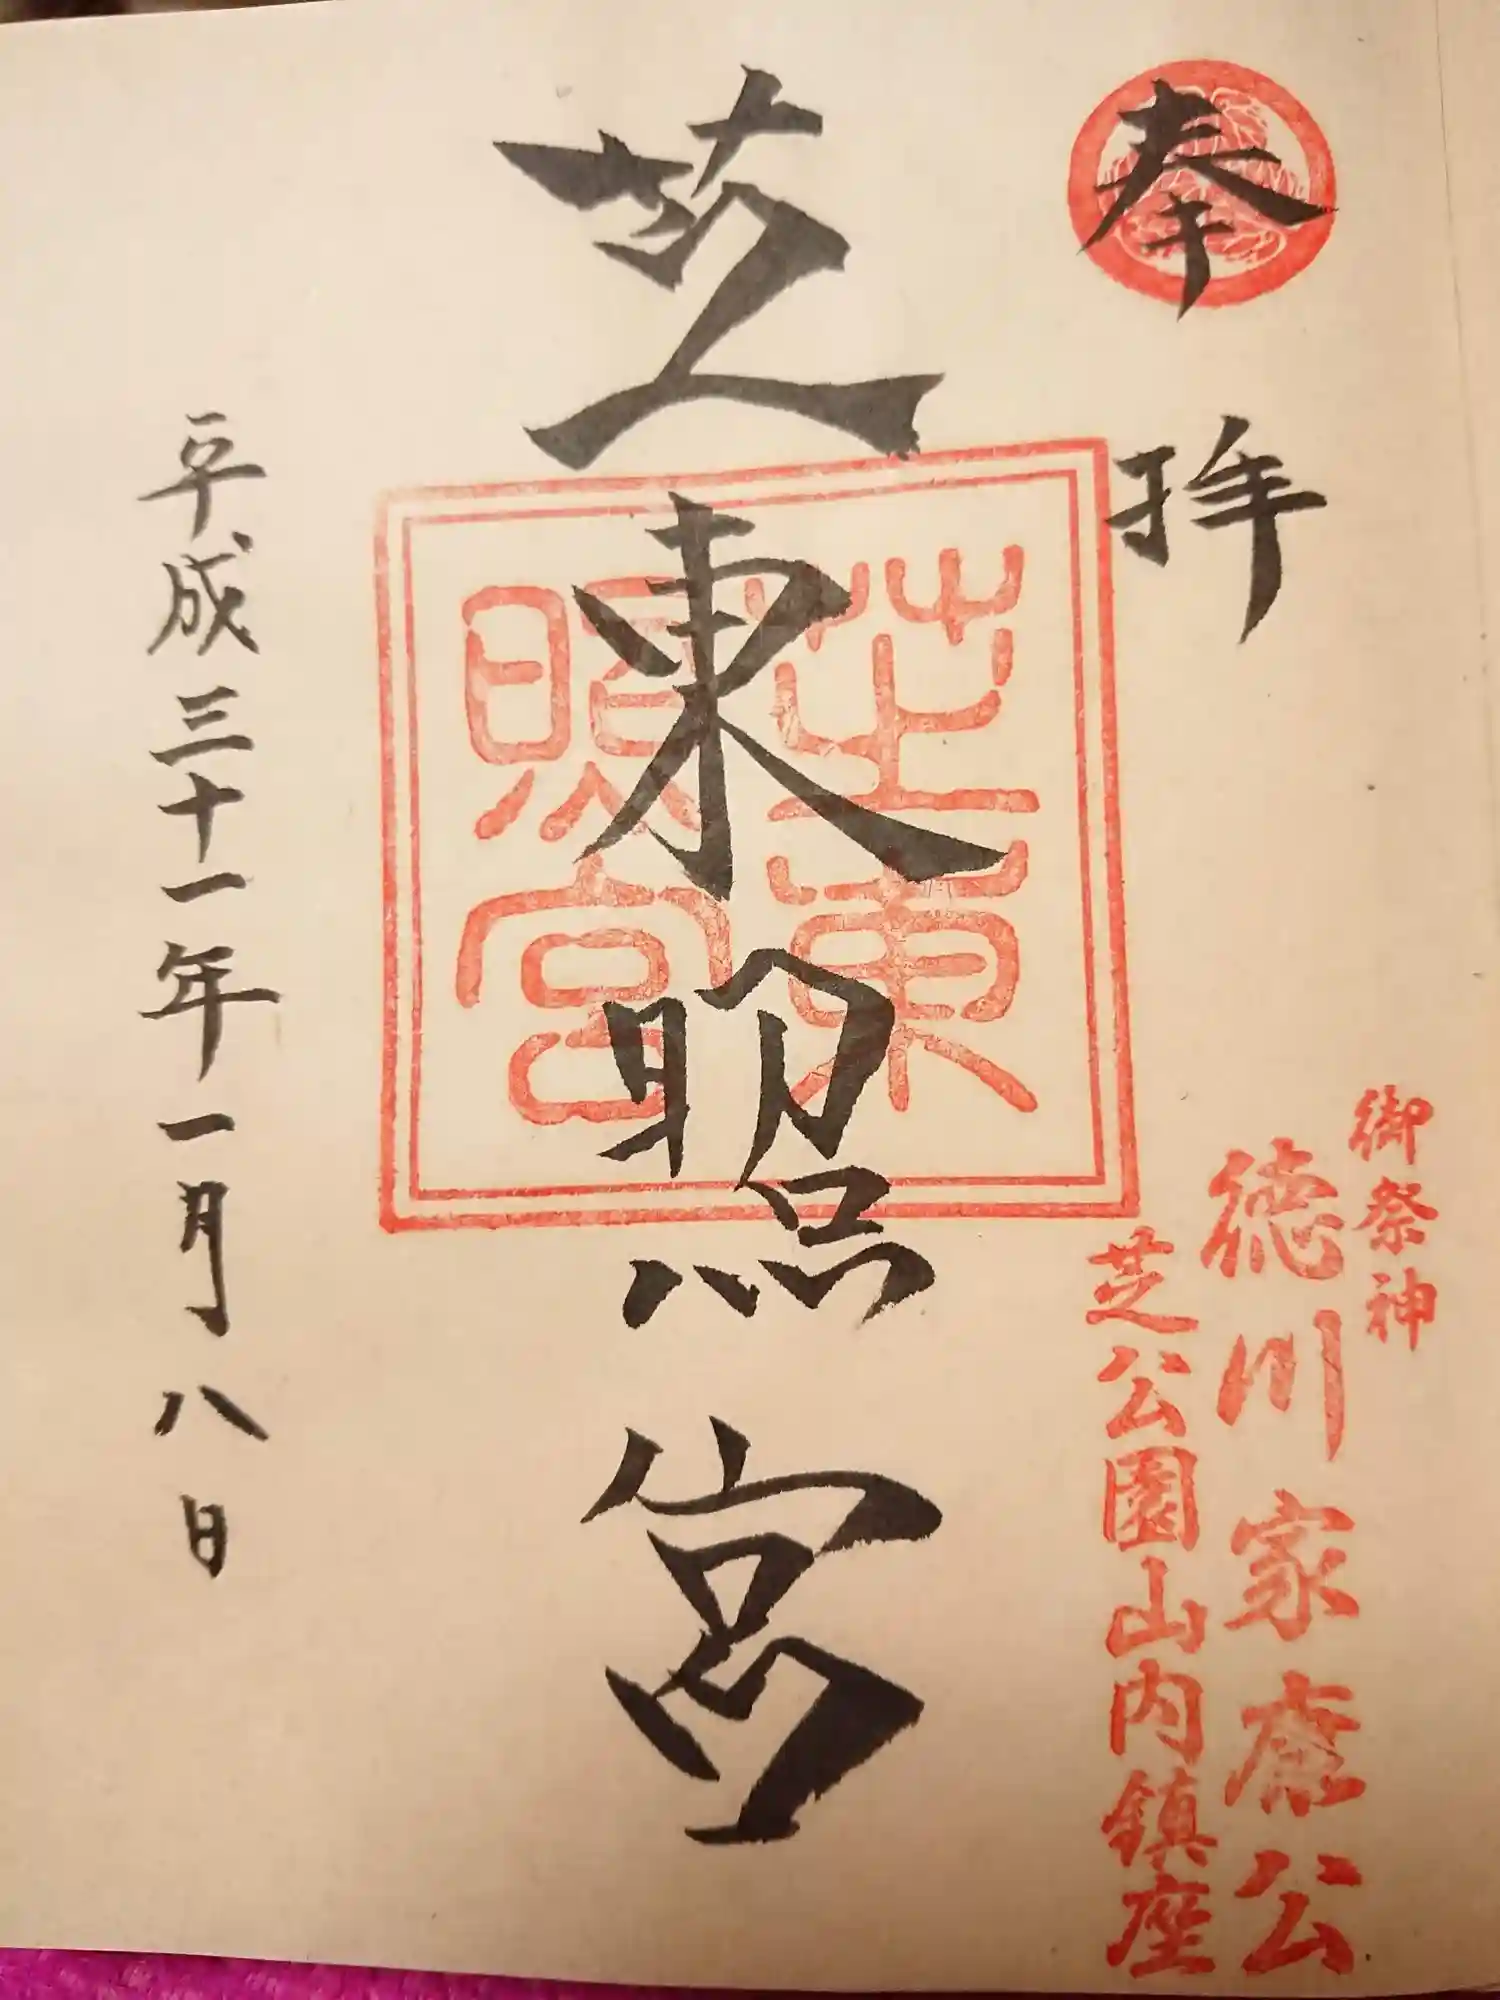 奉拝
御祭神
徳川家康公
芝公園山内鎮座
芝東照宮
芝東
照宮
平成三十一年一月八日